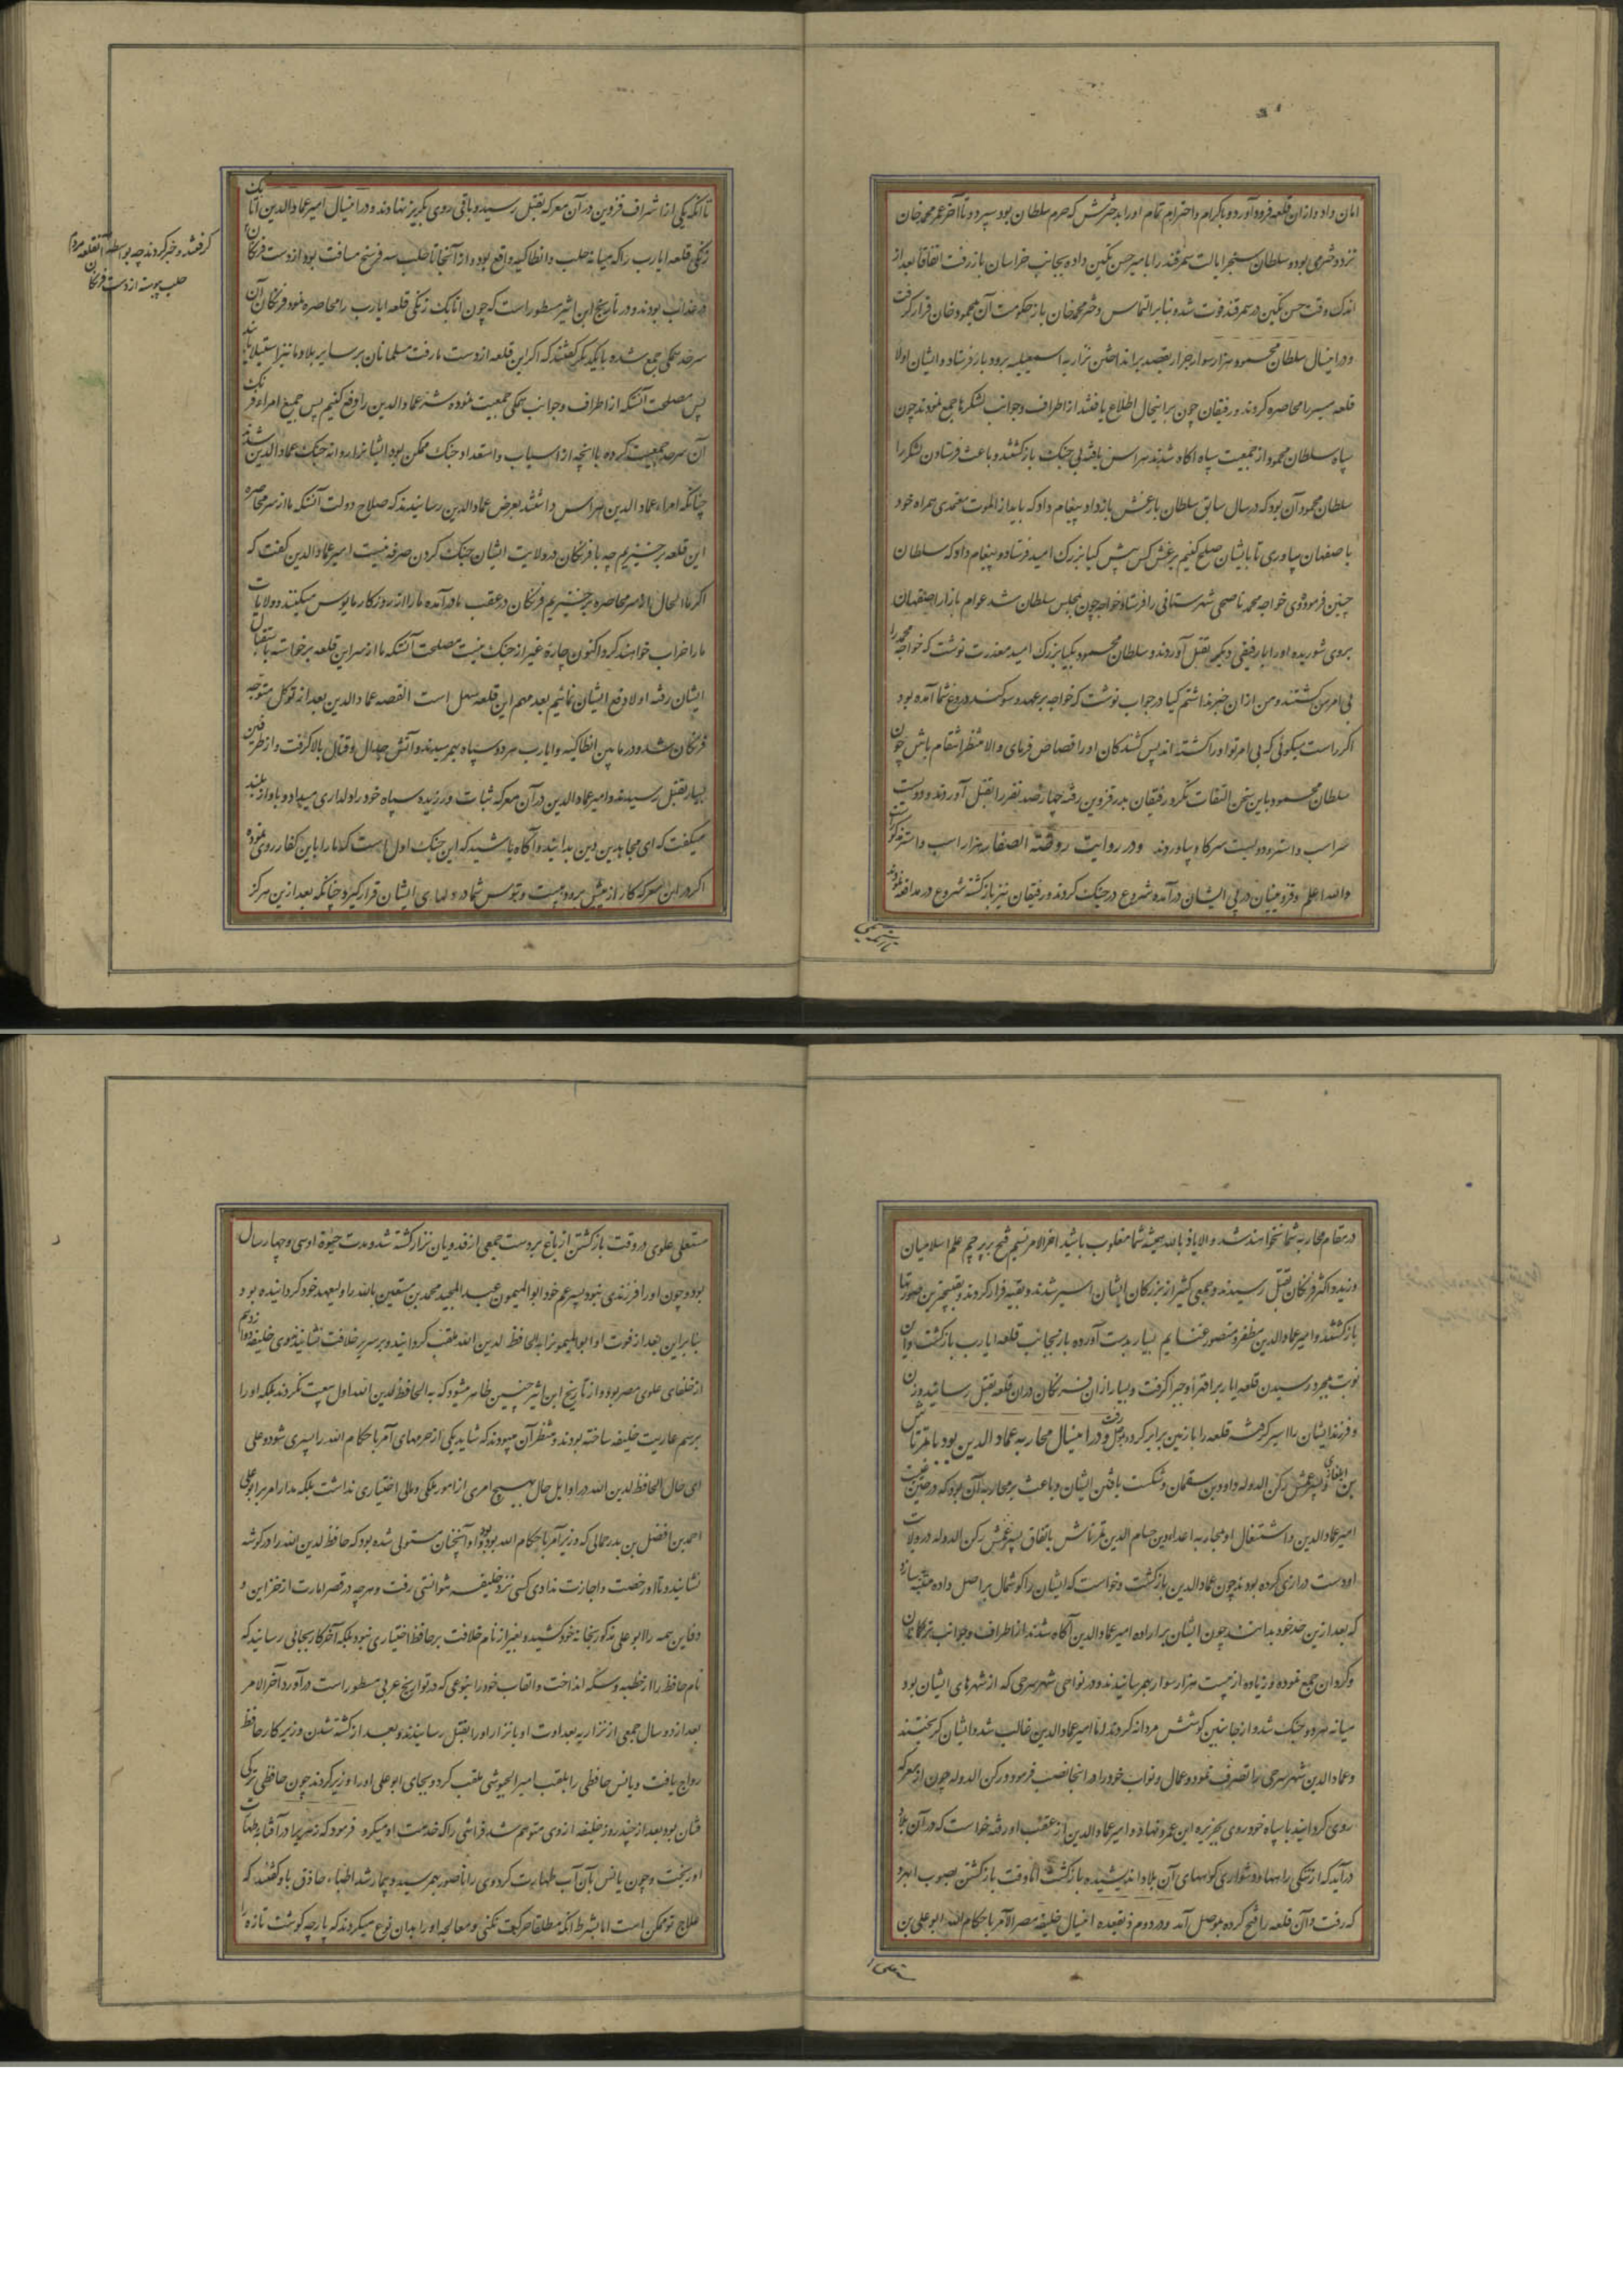 امان داد و از ان قلعه فرود آورد و باکرام و احترام تمام اورا بدخترش که حرم سلطان بود سپرد و تا آخر عمر محمد خان
نزد دخترمی بود و سلطان سنجر ایالت سمرقند را بامیر حسن تکین داده بجانب خراسان باز رفت اتفاقا بعد از
اندک وقت حسن تکین در سمرقند فوت شد و بنابر التماس دختر محمد خان باز حکومت آن بمحمود خان قرار گرفت
و در اینسال سلطان محمود هزار سوار جرار بقصد برانداختن نزاریه اسمعیلیه برودبار فرستاد و ایشان اولا
قلعه میسر را محاصره کردند و رفیقان چون بر اینحال اطلاع یافتند از اطراف و جوانب لشکرها جمع نمودند چون
سپاه سلطان محمود از جمعیت سپاه آکاه شدند هراس یافته بی جنک بازکشتند و باعث فرستادن لشکر را
سلطان محمود آن بود که در سال سابق سلطان بارغش بازدار پیغام داد که باید از الموت معتمدی همراه خود
باصفهان بیاوری تا بایشان صلح کنیم برغش کس پیش کیا بزرک امید فرستاد و پیغام داد که سلطان
چنین فرموده وی خواجه محمد ناصحی شهرستانی را فرستاد و خواجه چون بمجلس سلطان شد عوام بازار اصفهان
بروی شوریده اورا با رفیقی دیگر بقتل آوردند و سلطان محمود بکیا بزرک امید معذرت نوشت که خواجه محمد را
بی امر من کشتند و من از ان خبر نداشتم کیا در جواب نوشت که خواجه بر عهد و سوکند دروغ شما آمده بود
اکر راست میکوئی که بی امر تو اورا کشته اند پس کشندکان اورا قصاص فرمای والا منتظر انتقام باش چون
سلطان محمود باین سخن التفات نکرد رفیقان بدر قزوین رفته چهار صد نفر را بقتل آوردند و دویست
سر اسب و استر و دویست سر کاو بیاوردند و در روایت روضة الصفا سه هزار اسب و استر مذکور است
والله اعلم و قزوینیان در پی ایشان درآمد و شروع در جنک کردند و رفیقان نیز بازکشته شروع در مدافعه نمودند
تا آنکه یکی از اشراف قزوین در آن معرکه بقتل رسید و باقی روی بکریز نهادند و در اینسال امیر عماد الدین اتابک
زنکی قلعه ایارب را که میانه حلب و انطاکیه واقع بود و از آنجا تا حلب سه فرسخ مسافت بود از دست فرنکان
کرفتند و خبر کردند چه بواسطه آنقلعه مردم
حلب پیوسته از دست فرنکان
در عذاب بودند و در تاریخ ابن اثیر مسطور است که چون اتابک زنکی قلعه ایارب را محاصره نمود فرنکان آن
سرحد همکی جمع شده با یکدیکر کفتند که اکر این قلعه از دست ما رفت مسلمانان بر سایر بلاد ما نیز استیلا یابند
پس مصلحت آنستکه از اطراف و جوانب همکی جمعیت نموده شر عماد الدین را دفع کنیم پس جمیع امراء فرنک
آن سرحد جمعیت کرده با آنچه از اسباب و استعداد جنک ممکن بود ایشانرا روانه جنک عماد الدین شدند
چنانکه امراء عماد الدین هراس داشتند بعرض عماد الدین رسانیدند که صلاح دولت آنستکه ما از سر محاصره
این قلعه برخیزیم چه با فرنکان در ولایت ایشان جنک کردن صرفه نیست امیر عماد الدین کفت که
اکر ما الحال از سر محاصره برخیزیم فرنکان در عقب ما درآمده ما را از روزکار مایوس میکنند و ولایات
ما را خراب خواهند کرد اکنون چاره غیر از جنک نیست مصلحت آنستکه ما از سر این قلعه برخواسته باستقبال
ایشان رفته اولا دفع ایشان نمائیم بعد مهم این قلعه سهل است القصه عماد الدین بعد از توکل متوجه
فرنکان شد و در مابین انطاکیه و ایارب هر دو سپاه بهم رسیدند و آتش جدال و قتال بالا کرفت و از طرفین
بسیار بقتل رسیدند و امیر عماد الدین در آن معرکه ثبات ورزیده سپاه خود را دلداری میداد و باواز بلند
میکفت که ای مجاهدین دین بدانید و آکاه باشید که این جنک اول است که ما را با این کفار روی نموده
اکر در این معرکه کار از پیش برود هیبت و ترس شما در دلهای ایشان قرار کیرد چنانکه بعد ازین هرکز
در مقام محاربه شما نخواهند شد والا یاذ بالله همیشه شما مغلوب باشید آخر الامر نسیم فتح بر پرچم علم اسلامیان
وزید و اکثر فرنکان بقتل رسیدند و جمعی کثیر از بزرکان ایشان اسیر شدند و بقیه فرار کردند و بقبیحترین صورتها
بازکشتند و امیر عماد الدین مظفر و منصور غنایم بسیار بدست آورده باز بجانب قلعه ایارب بازکشت و این
نوبت بمجرد رسیدن قلعه ایارب را قهرا و جبرا کرفت و بسیار از آن فرنکان در ان قلعه بقتل رسانید و زن
و فرزند ایشان را اسیر کرفته قلعه را با زمین برابر کرده بموصل رفت و در اینسال محاربه عماد الدین بود با تمرتاش
بن ایلغازی و پسر عمش رکن الدوله داود بن سقمان و شکست یافتن ایشان و باعث بر محاربه آن بود که در حین غیبت
امیر عماد الدین و اشتغال او بمحاربه اعداء دین حسام الدین تمرتاش باتفاق پسر عمش رکن الدوله در ولایت
او دست درازی کرده بودند چون عماد الدین بازکشت و خواست که ایشان را کوشمال بر اصل داده متنبه سازد
که بعد ازین حد خود بدانند چون ایشان بر اراده امیر عماد الدین آکاه شدند از اطراف و جوانب ترکمانان
و کردان جمع نموده و زیاده از بیست هزار سوار بهم رسانیدند و در نواحی شهر سرجی که از شهرهای ایشان بود
میانه هر دو جنک شد و از جانبین کوشش مردانه کردند اما امیر عماد الدین غالب شد و ایشان کریختند
و عماد الدین شهر سرجی را تصرف نمود و عمال و نواب خود را در انجا نصب فرمود و رکن الدوله چون از معرکه
روی کردانید با سپاه خود روی بجزیره ابن عمرو نهاد و امیر عماد الدین از عقب او رفته خواست که در آن بلاد
درآید که از تنکی راهها و دشواری کوههای آن بلاد اندیشیده بازکشت اما وقت بازکشتن بصوب ابهرد
که رفت و آن قلعه را فتح کرده بموصل آمد و در دوم ذیقعده اینسال خلیفه مصر الآمر باحکام الله ابو علی بن
مستعلی علوی در وقت بازکشتن از باغ بر دست جمعی از فدویان نزار کشته شد و مدت حیوة او سی و چهار سال
بود و چون او را فرزندی نبود پسر عم خود ابوالمیمون عبد المجید محمد بن مستعین بالله را ولیعهد خود کردانیده بود
بنابر این بعد از فوت او ابوالمیمون را به الحافظ لدین الله ملقب کردانیده و بر سریر خلافت نشانیدند وی خلیفه دوازدهم
از خلفای علوی مصر بود و از تاریخ ابن اثیر چنین ظاهر میشود که به الحافظ لدین الله اول بیعت نکردند بلکه اورا
برسم عاریت خلیفه ساخته بودند و منتظر آن میبودند که شاید یکی از حرمهای آمر باحکام الله را پسری شود و علی
ای حال الحافظ لدین الله در اوایل حال هیچ امری از امور ملکی و مالی اختیاری نداشت بلکه مدار امر بر ابو علی
احمد بن افضل بن بدر جمالی که وزیر آمر باحکام الله بود بود و او آنچنان مستولی شده بود که حافظ لدین الله را در کوشه
نشانید و تا او رخصت و اجازت ندادی کسی نزد خلیفه نتوانستی رفت و هرچه در قصر امارت از خزاین و
دفاین همه را ابو علی مذکور بخانه خود کشید و بغیر از نام خلافت بر حافظ اختیاری نبود بلکه آخر کار بجائی رسانید که
نام حافظ را از خطبه و سکه انداخت و القاب خود را بنوعی که در تواریخ عربی مسطور است درآورد آخر الامر
بعد از دو سال جمعی از نزاریه بعداوت او با نزار اورا بقتل رسانیدند و بعد از کشته شدن وزیر کار حافظ
رواج یافت و یانس حافظی را بلقب امیر الجیوشی ملقب کرد و بجای ابو علی اورا وزیر کردند چون حافظی ترکی
فتان بود بعد از چند روز خلیفه از وی متوهم شده فراشی را که خدمت او میکرد فرمود که زهر در آفتابه طهارت
او ریخت و چون یانس بآن آب طهارت کرد وی را ناصور بهم رسید و بیمار شد اطباء حاذق باو کفتند که
علاج تو ممکن است اما بشرط آنکه مطلقا حرکت نکنی و معالجه اورا بدان نوع میکردند که پارچه کوشت تازه را